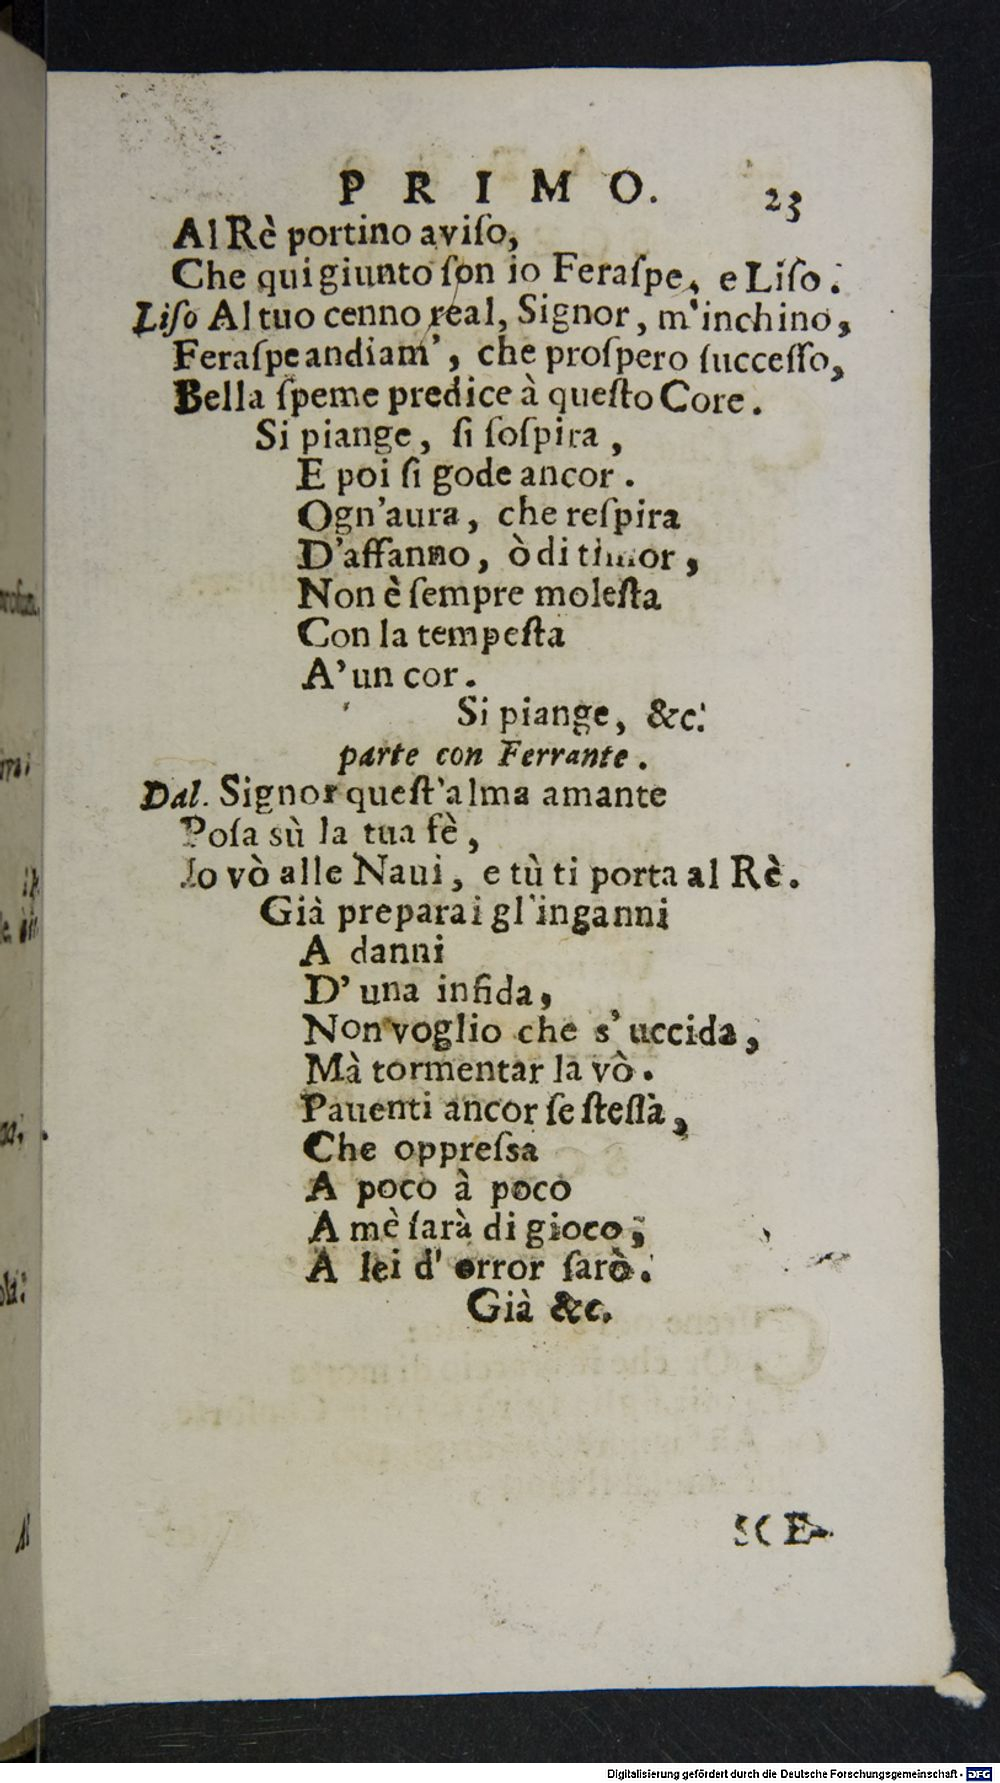 PRIMO. 23
Al Rè portino aviſo,
Che qui giunto ſon io Feraſpe, e Liſo.
Liſo Al tuo cenno real, Signor, m'inchino,
Feraſpe andiam', che proſpero ſucceſſo,
Bella ſpeme predice à queſto Core.
Si piange, ſi ſoſpira,
E poi ſi gode ancor.
Ogn'aura, che reſpira
D'affanno, ò di timor,
Non è ſempre moleſta
Con la tempeſta
A' un cor.
Si piange, &c.
parte con Ferrante.
Dal. Signor queſt'alma amante
Poſa sù la tua fè,
Io vò alle Naui, e tù ti porta al Rè.
Già preparai gl'inganni
A danni
D'una infida,
Non voglio che s'uccida,
Mà tormentar la vò.
Pauenti ancor ſe ſteſſa,
Che oppreſsa
A poco à poco
A mè ſarà di gioco;
A lei d'orror ſarò.
Già &c.
SCE-
Digitalisierung gefördert durch die Deutsche Forschungsgemeinschaft - DFG